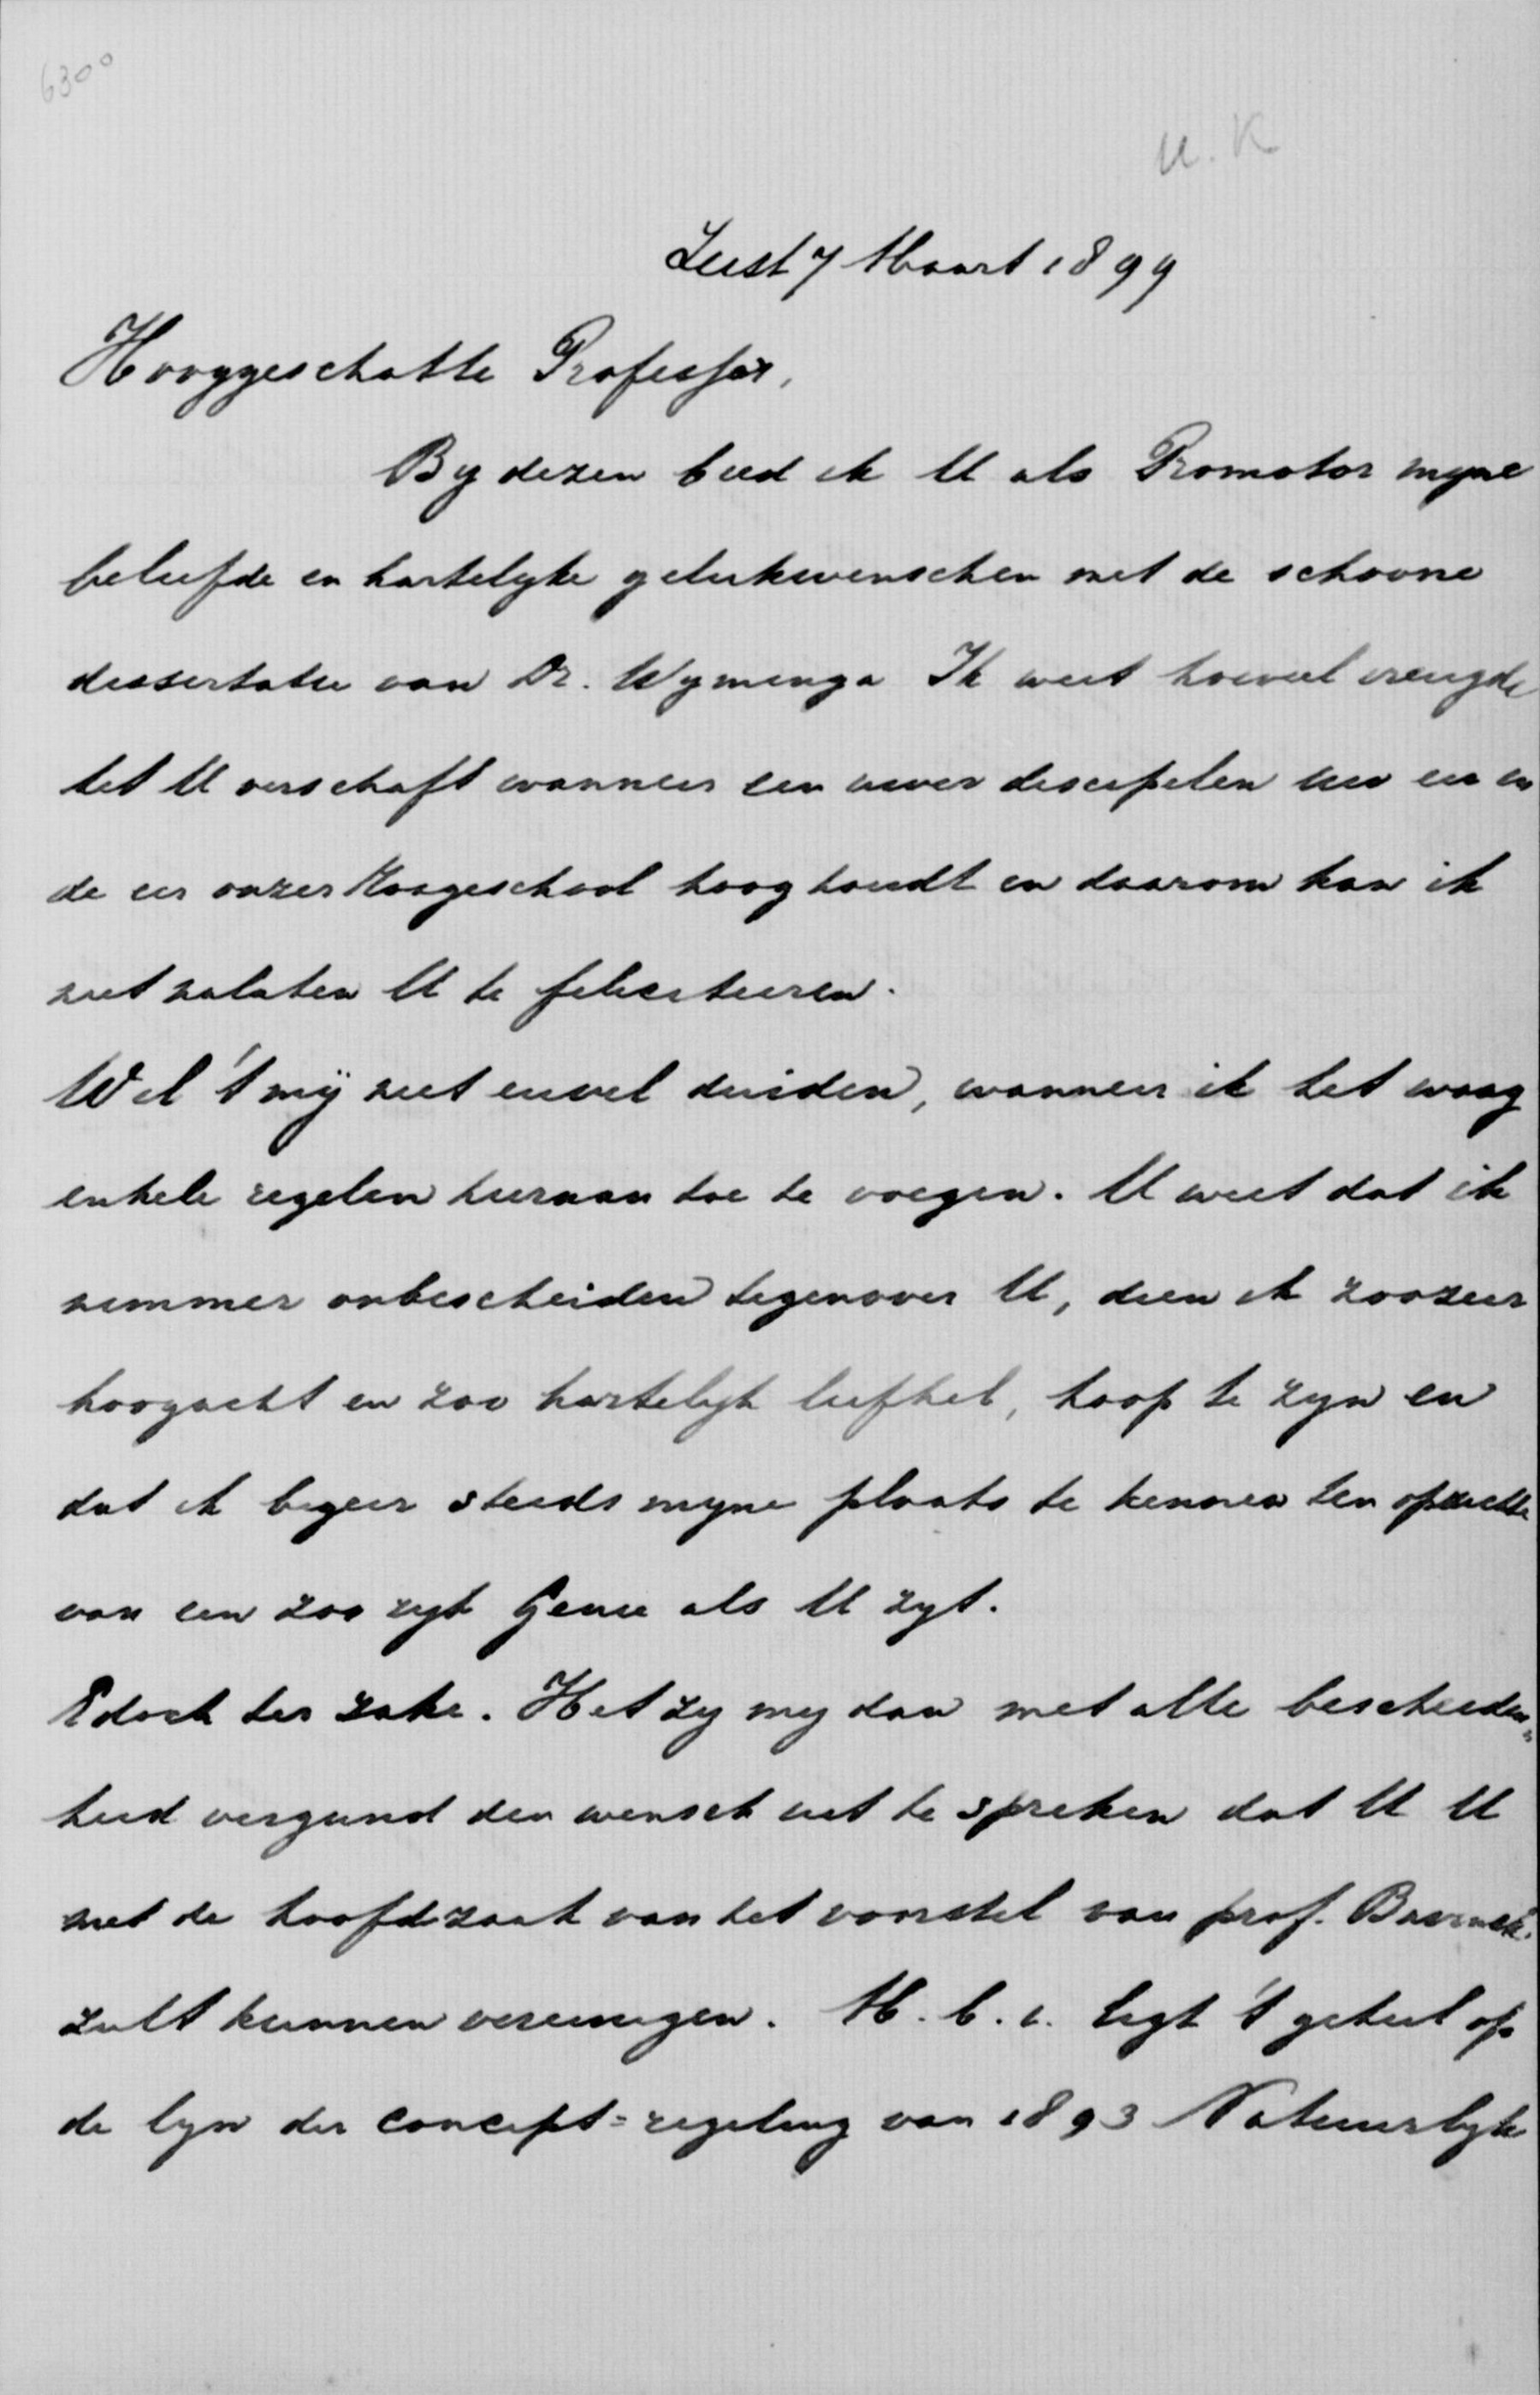 6300
U. K
Zeist 7 Maart 1899
Hooggeschatte Professor,
By dezen bied ik U als Promotor myne
beleefde en hartelyke gelukwenschen met de schoone
dissertatie van Dr. Wymenga Ik weet hoeveel vreugde
het U verschaft wanneer een uwer discipelen uw eer en
de eer onzer Hoogeschool hoog houdt en daarom kan ik
niet nalaten U te feliciteeren.
Wil 't mij niet euvel duiden, wanneer ik het waag
enkele regelen hieraan toe te voegen. U weet dat ik
nimmer onbescheiden tegenover U, dien ik zoozeer
hoogacht en zoo hartelyk liefheb, hoop te zyn en
dat ik begeer steeds myne plaats te kennen ten opzichte
van een zoo ryk Genie als U zyt.
Edoch ter zake. Het zy my dan met alle bescheiden=
heid vergund den wensch uit te spreken dat U U
met de hoofdzaak van het voorstel van prof. Bavinck
zult kunnen vereenigen. M. b. i. ligt 't geheel op
de lyn der concept=regeling van 1893 Natuurlyk